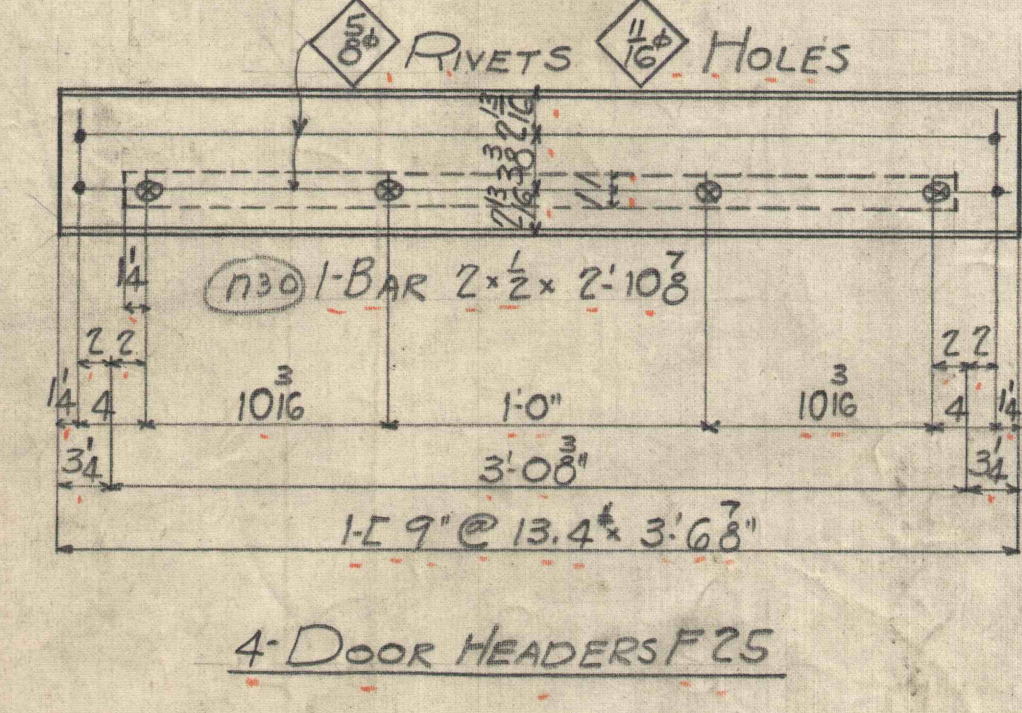 5/8ϕ RIVETS 11/16ϕ HOLES
2 13/16
3 3/8
2 13/16
1 1
n30 1-BAR 2 x 1/2 x 2'-10 7/8
1 1/4
2 2 2 2
1 1/4 4 10 3/16 1'-0" 10 3/16 4 1 1/4
3 1/4 3'-0 3/8" 3 1/4
1-[ 9" @ 13.4# x 3'-6 7/8"
4-DOOR HEADERS F25